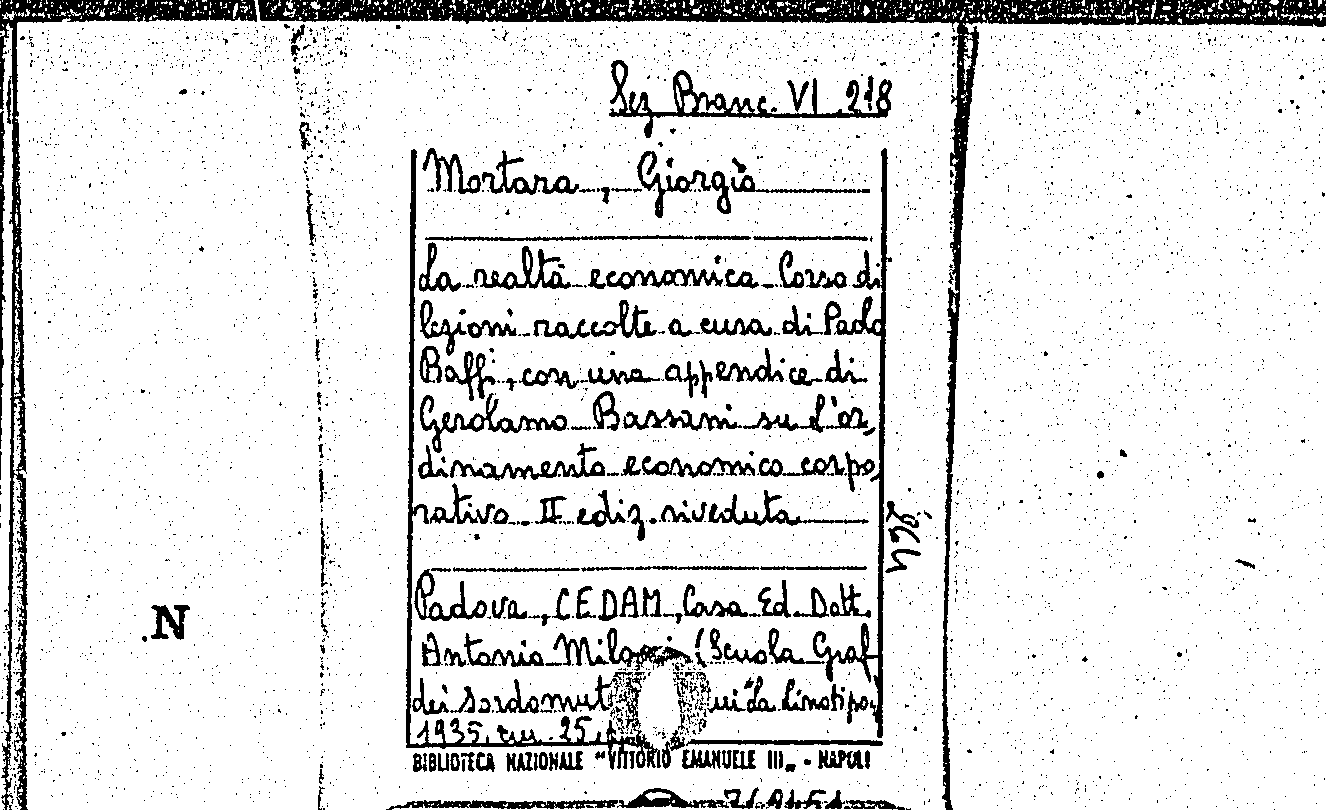 Sez Branc. VI .218
Mortara, Giorgio
La realtà economica. Corso di
lezioni raccolte a cura di Paolo
Baffi, con una appendice di
Gerolamo Bassani su l'or,
dinamento economico corpo,
rativo. II ediz. riveduta
Padova, CEDAM, Casa Ed. Dott.
Antonio Milani (Scuola Graf
dei Sordomut
"La Linotipo,
1935, cm. 25,
BIBLIOTECA NAZIONALE "VITTORIO EMANUELE III„ - NAPOLI
N